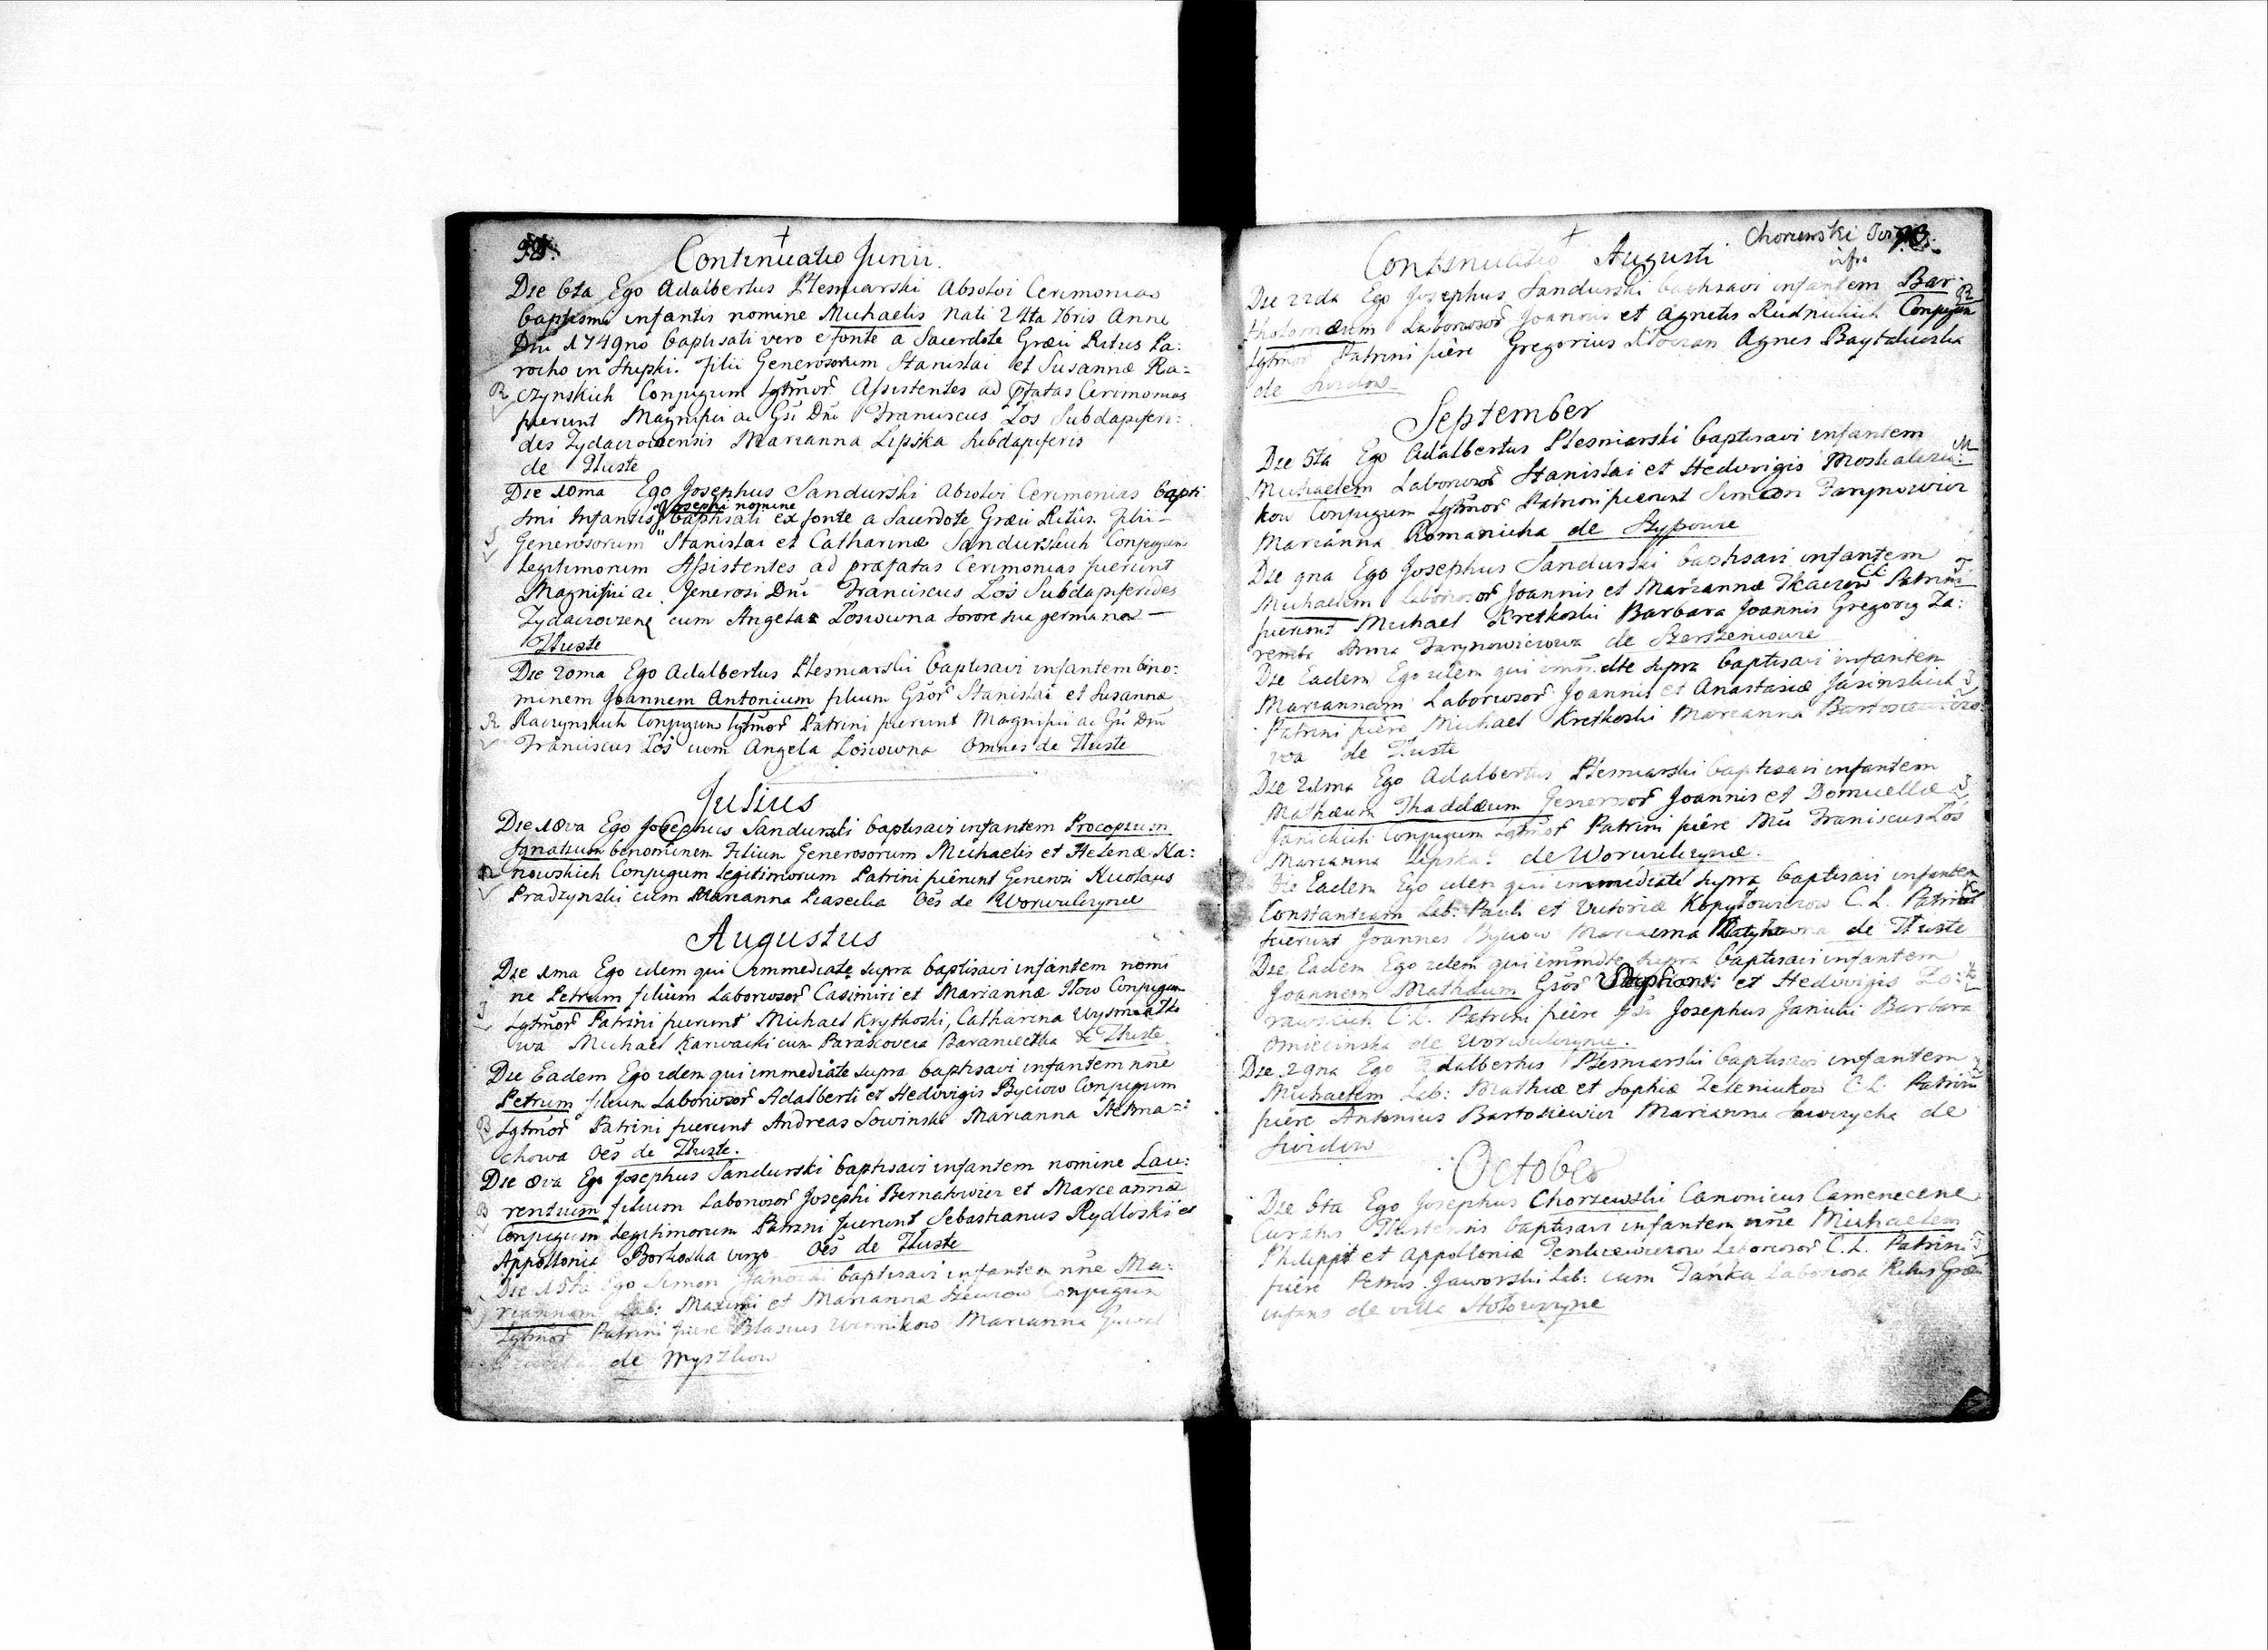 Continuatio Junii
Die 6ta Ego Adalbertus Plesniarski Absolvi Cerimonias
baptismi infantis nomine Michaelis nati 24ta 7bris Anni
Dni 1749no baptisati vero e fonte a Sacerdote Græci Ritus Pa:
rocho in Slupki. filii Generosorum Stanislai et Susannæ Ra=
R czynskich Conjugum Lgtmor Assistentes ad pfatas Cerimonias
fuerunt Magnifici ac Gsi Dni Franciscus Łos Subdapiferi:
des Zydaczoviensis Marianna Lipska Subdapiferis
de Tłuste
Die 10ma Ego Josephus Sandurski Absolvi Cerimonias bapti
Josephi nomine
smi Infantis baptisati ex fonte a Sacerdote Græci Ritûs. filii
S Generosorum Stanislai et Catharinæ Sandurskich Conjugum
Legitimorum Assistentes ad præfatas Cerimonias fuerunt
Magnifici ac Generosi Dni Franciscus Łos Subdapiferides
cum Angela Łosiowna sorore sua germana
Tłuste
Die 20ma Ego Adalbertus Plesniarski baptisavi infantem bino:
minem Joannem Antonium filium Gsor Stanislai et Susannæ
R Raczynskich Conjugum lgtmor Patrini fuerunt Magnifici ac Gsi Dni
Franciscus Łos cum Angela Łosiowna Omnes de Tłuste
Julius
Die 18va Ego Josephus Sandurski baptisavi infantem Procopium
Ignatium benominem Filium Generosorum Michaelis et Helenæ Ka:
nowskich Conjugum Legitimorum Patrini fuêrunt Generosi Nicolaus
Pradzynski cum Marianna Piasecka Oês de Worwulincyne
Augustus
Die 1ma Ego idem qui immediate supra baptisavi infantem nomi
ne Petrum filium Laboriosor Casimiri et Mariannæ Conjugum
Lgtmor Patrini fuerunt Michael Krytkoski, Catharina
wa Michael Karwacki cum Parascovia de Tłuste
Die Eadem Ego idem qui immediate supra baptisavi infantem nne
Petrum filium Laboriosor Adalberti et Hedvigis Byciow Conjugum
B Lgtmor Patrini fuerunt Andreas Sowinski Marianna Stelma=
chowa Oês de Tłuste.
Die 8va Ego Josephus Sandurski baptisavi infantem nomine Lau:
B rentium filium Laboriosor Josephi Bernatowicz et Mareannæ
Conjugum Legitimorum Patrini fuerunt Sebastianus Rydloski et
Appollonia Borkoska virgo Oês de Tłuste
Die 15ta Ego Simon baptisavi infantem nne Ma:
riannam Lab: Maximi et Mariannæ Conjugum
Lgtmor Patrini fuere Blasius Winnikow Marianna
de Myszkow
Chorzewski
infra
Continuatio Augusti
Die 22da Ego Josephus Sandurski baptisavi infantem Bar
R
tholomæum Laboriosor Joannis et Agnetis Rudnickich Conjugum
Lgtmor Patrini fuêre Gregorius Agnes
de Swidow
September
Die 5ta Ego Adalbertus Plesniarski baptisavi infantem
M
Michaelem Laboriosor Stanislai et Hedvigis
kow Conjugum Lgtmor Patrini fuerunt Simeon Jarynowicz
Marianna Romanicha de Szypowce
Die 9na Ego Josephus Sandurski baptisavi infantem
Michaelem Laboriosor Joannis et Mariannæ Tkaczow C.L. Patrini
fuerunt Michael Kretkoski Barbara Joannis Gregorij Za:
remba Anna Jarynowiczowa de Szerszeniowce
Die Eadem Ego idem qui immdte supra baptisavi infantem
Mariannam Laboriosor Joannis et Anastasiæ Jasinskich
Patrini fuêre Michael Kretkoski Marianna
wa de Tłuste
Die 21ma Ego Adalbertus Plesniarski baptisavi infantem
Mathæum Thaddæum Generosor Joannis et Domicellæ
Janickich Conjugum Lgtmor Patrini fuêre Franciscus Łos
Marianna Lipska de Worwulincyne.
Die Eadem Ego idem qui immediate supra baptisavi infantem
Constantiam Lab: Pauli et Victoriæ Kopytowiczow C.L. Patrini
fuerunt Joannes Byciow Marianna de Tłuste
Die Eadem Ego idem qui immdte supra baptisavi infantem
Joannem Mathæum Gsor Stephani et Hedvigis
rawskich C.L. Patrini fuêre Gsi Josephus Janicki Barbara
Omiecinska de Worwulincyne.
Die 29na Ego Adalbertus Plesniarski baptisavi infantem
Michaelem Lab: Mathiæ et Sophiæ Zeleniukow C.L. Patrini
fuêre Antonius Bartosiewicz Marianna de
Swidow
October
Die 6ta Ego Josephus Chorzewski Canonicus Camenecene
Curatus Tłustensis baptisavi infantem nne Michaelem
Philippi et Appolloniæ Laboriosor C.L. Patrini
fuêre Petrus Jaworski Lab: cum Tańka Laboriosa Ritus Græci
infans de villa Hołowczyne